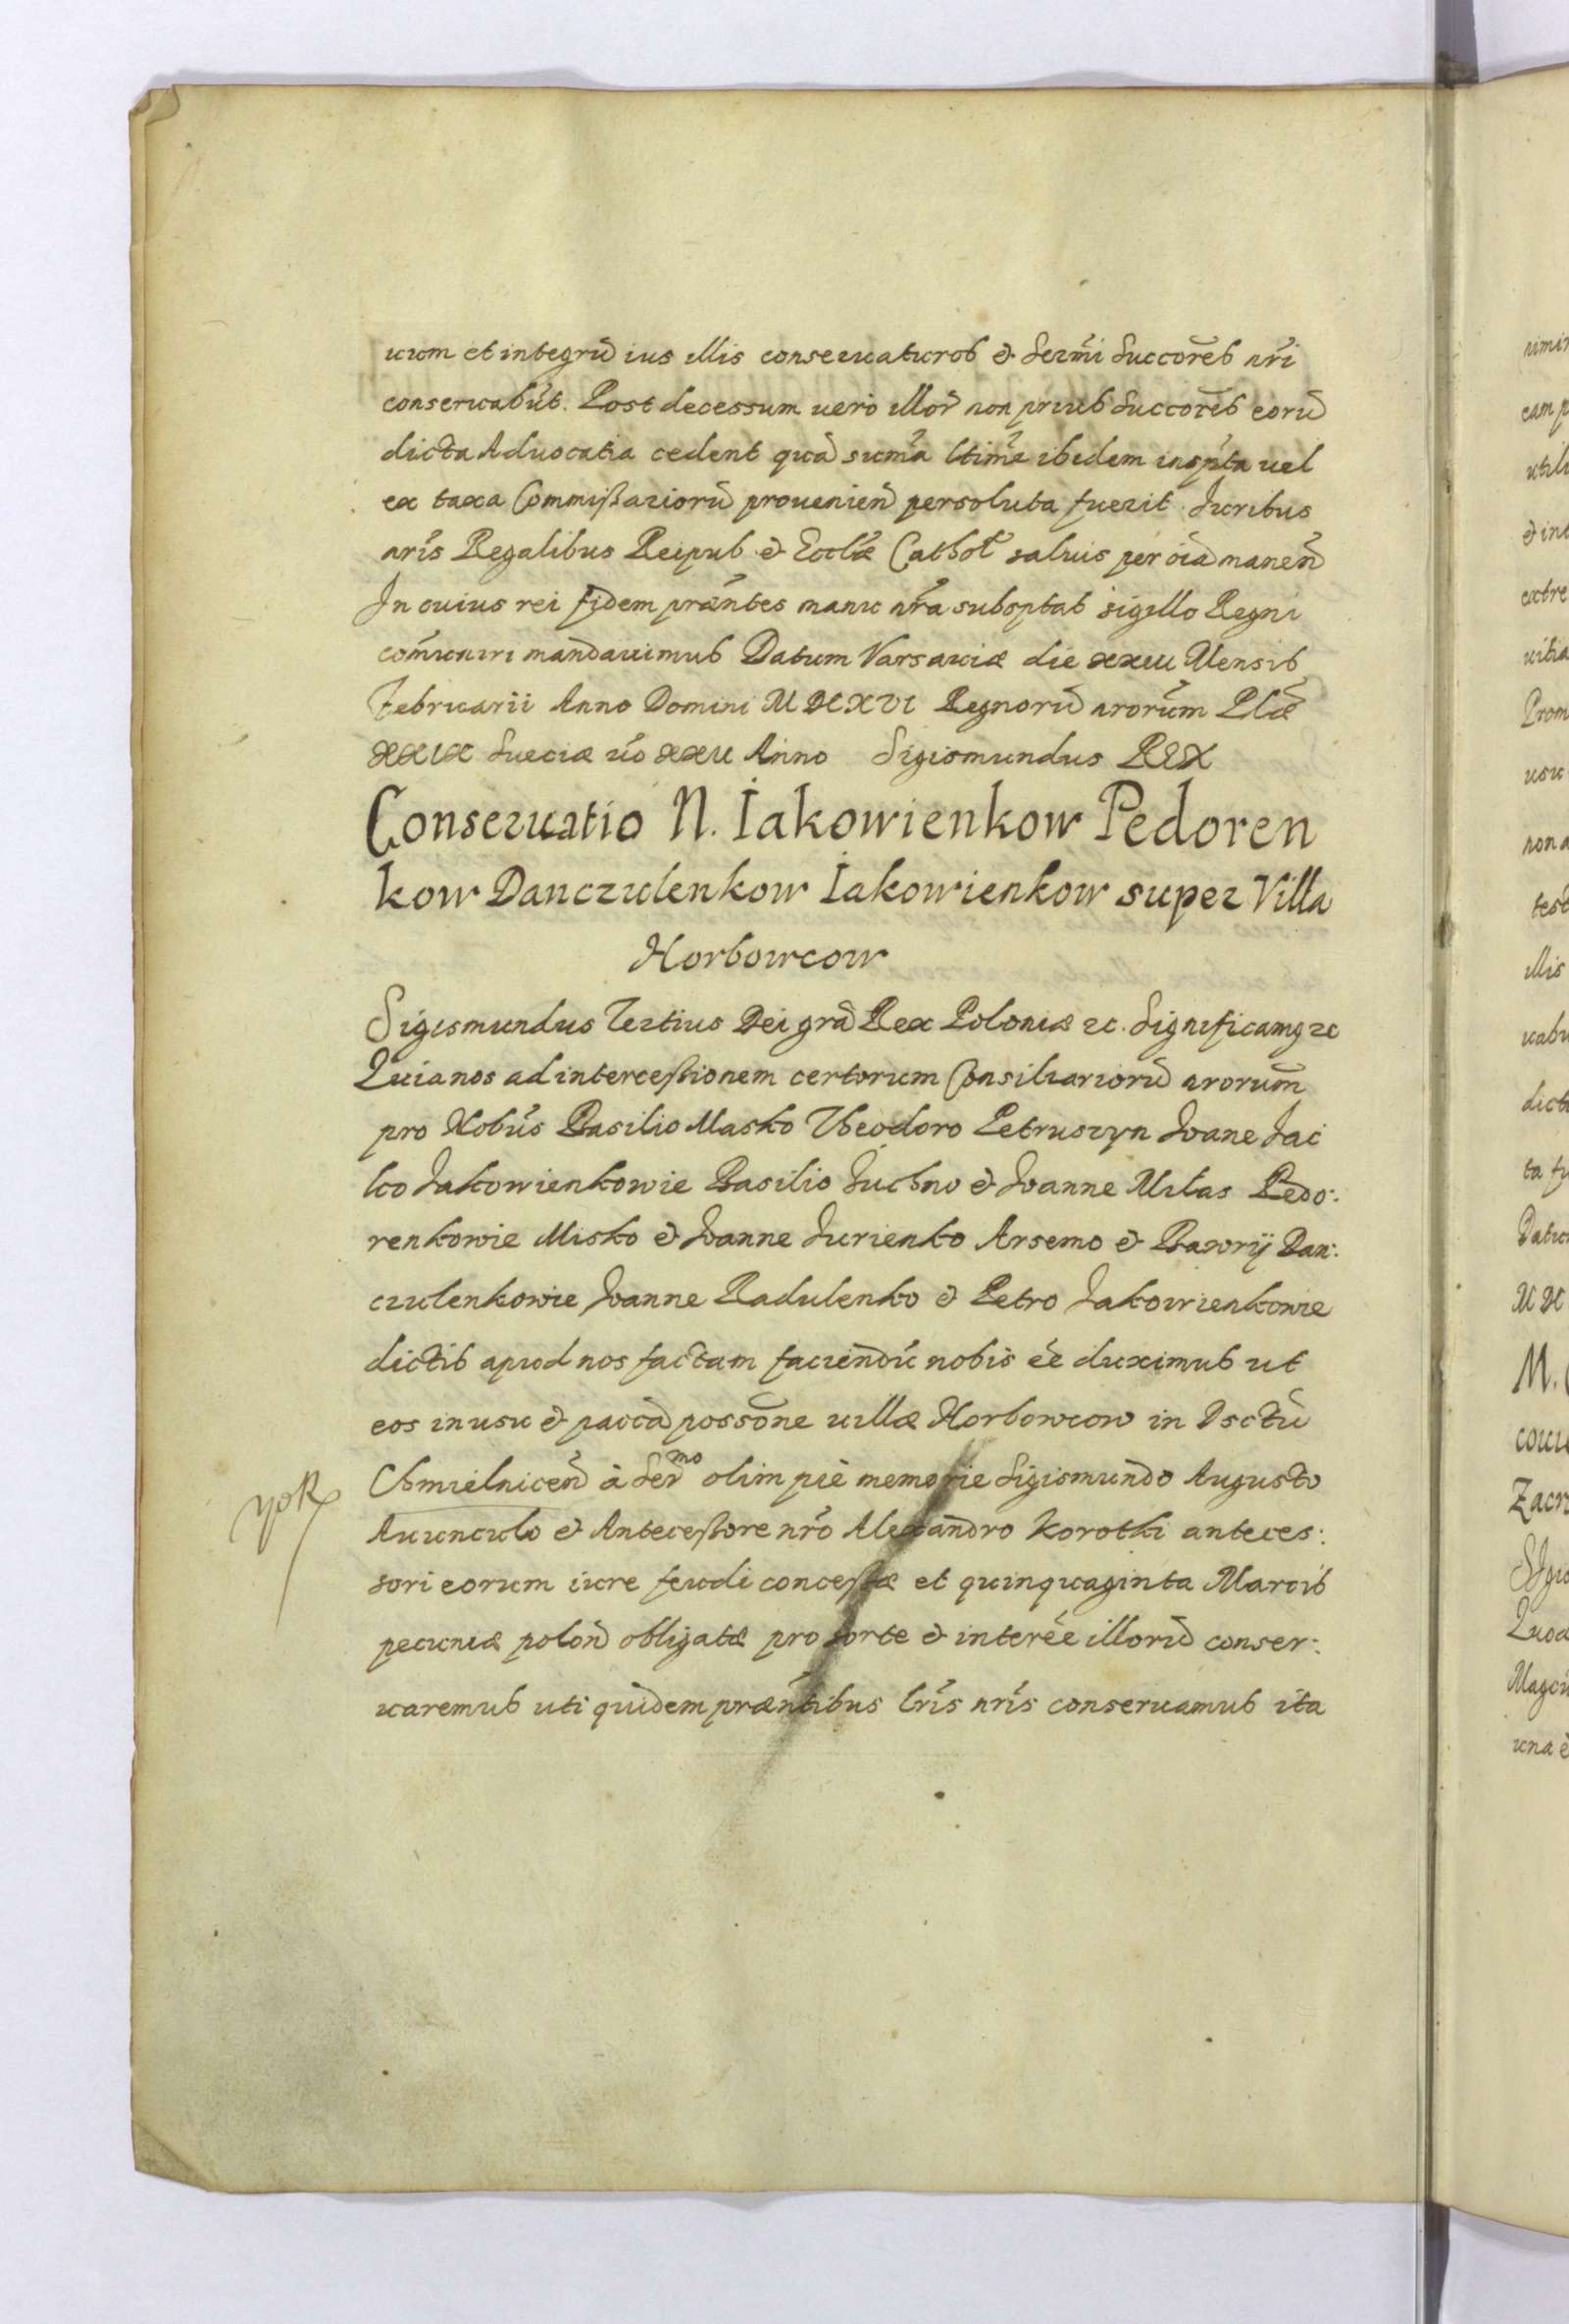 uum et integrũ ius illis conseruaturos & Serm̃i Succores nr̃i
conseruabũt. Post decessum uero illor̃ non prius Succores eorũ
dicta Aduocatia cedent quã sum̃a ltim̃e ibidem inspta uel
ex taxa Commißariorũ prouenien̄ persoluta fuerit. Iuribus
nrĩs Regalibus Reipub & Eccłiæ Cathol saluis per oĩa manen̄
In cuius rei fidem præntes manu nr̃a subsptas sigillo Regni
com̃uniri mandauimus Datum Varsauiæ die Mensis
Februarii Anno Domini MDCXVI Regnorũ nrorũm Plæ
xxix Sueciæ ũo Anno Sigismundus REX
Conseruatio N. Iakowienkow Pedoren
kow Danczulenkow Iakowienkow super Villa
Horbowcow
Sigismundus Tertius Dei grã Rex Poloniæ zc. Significamq zc
Quia nos ad intercessionem certorum Consiliariorũ nrorũm
pro Nobũs Basilio Masko Theodoro Petruszyn Ioane Iac
ko Iakowienkowie Basilio Iuchno & Ioanne Milas Pedo:
renkowie Misko & Ioanne Iurienko Arsemo & Dan:
czulenkowie Ioanne Radulenko & Petro Iakowienkowie
dictis apud nos factam faciendũ nobis eẽ duximus ut
eos in usu & paccã possõne uillæ Horbowcow in Dsctũ
Chmielnicen̄ à Ser mo olim piè memorie Sigismundo Augusto
Auunculo & Anteceßore nrõ Alexandro Korothi anteces:
sori eorum iure feudi conceßæ et quinquaginta Marcis
pecuniæ polon̄ obligatæ pro sorte & intereẽ illorũ conser:
uaremus uti quidem præntibus lrĩs nrĩs conseruamus ita